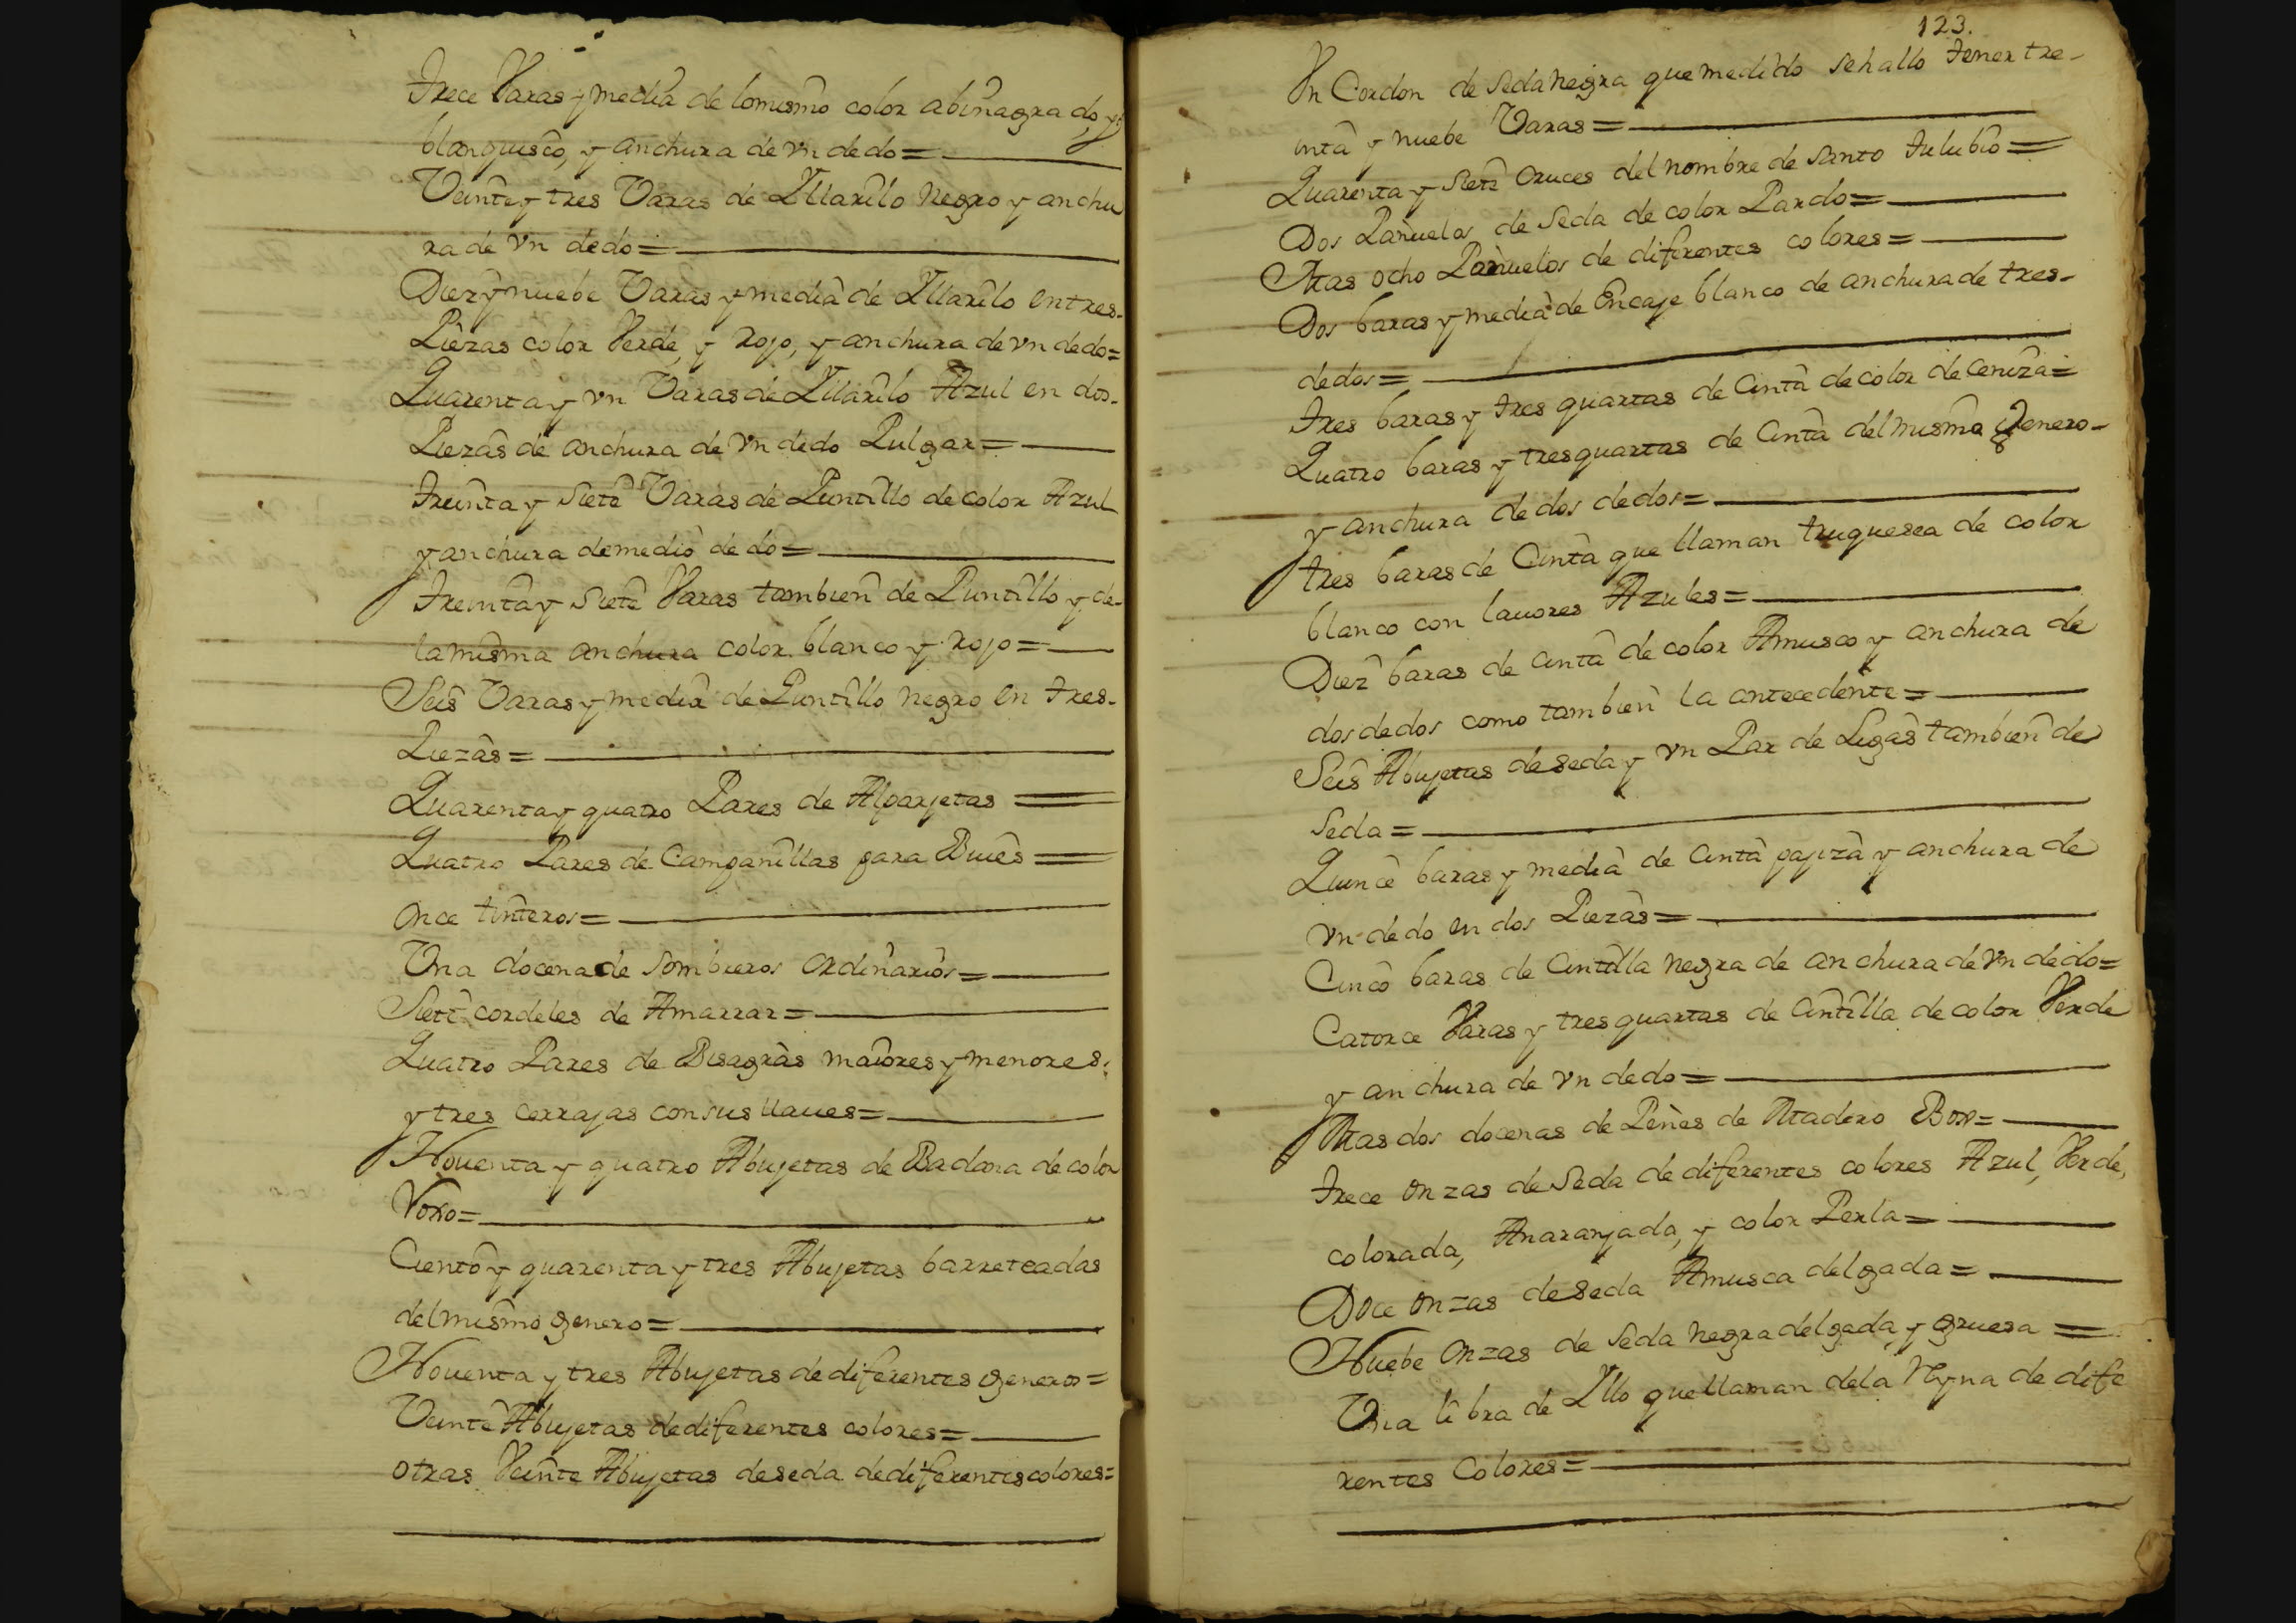 Trece Varas y media de lo mismo color abinagrado, y
blanquisco, y anchura de vn dedo=
Veinte y tres Varas de Yllarilo Negro y anchu
ra de vn dedo=
Diez y nuebe Varas y media de Yllarilo en tres-
Piezas color Verde, y Rojo, y anchura de vn dedo=
Quarenta y vn Varas de Yllarilo Azul en dos-
Piezas de anchura de vn dedo Pulgar=
Treinta y Siete Varas de Puntillo de color Azul
y anchura de medio dedo=
Treinta y Siete Varas tambien de Puntillo y de-
la misma anchura color blanco y Rojo=
Seis Varas y media de Puntillo negro en tres-
Piezas=
Quarenta y quatro Pares de Alparjetas =
Quatro Pares de Campanillas para Buies =
Once tinteros=
Vna docena de Sombreros Ordinarios=
Siete cordeles de Amarrar=
Quatro Pares de Bisagras maiores y menores;
y tres cerrajas con sus llaues=
Nouenta y quatro Abujetas de Badana de color
Roxo=
Ciento y quarenta y tres Abujetas barreteadas
del mismo genero=
Nouenta y tres Abujetas de diferentes generos=
Veinte Abujetas de diferentes colores=
otras Veinte Abujetas de seda de diferentes colores=
123.
Vn Cordon de Seda Negra que medido se hallo tener tre-
inta y nuebe Varas=
Quarenta y Siete Cruces del nombre de Santo Tulubio=
Dos Pañuelos de Seda de color Pardo=
Otras ocho Pañuelos de diferentes colores=
Dos baras y media de Encaje blanco de anchura de tres-
dedos=
Tres baras y tres quartas de Cinta de color de Ceniza=
Quatro baras y tres quartas de Cinta del mismo Genero-
y anchura de dos dedos=
tres baras de Cinta que llaman truquesea de color
blanco con lauores Azules=
Diez baras de cinta de color Amusco y anchura de
dos dedos como tambien la antecedente=
Seis Abujetas de seda y vn Par de Ligas tambien de
Seda=
Quince baras y media de Cinta pajiza y anchura de
vn dedo en dos Piezas=
Cinco baras de Cintilla Negra de anchura de vn dedo=
Catorce Varas y tres quartas de Cintilla de color Verde
y anchura de vn dedo=
Otras dos docenas de Peines de Atadero Box=
Trece onzas de Seda de diferentes colores Azul, Verde,
colorada, Anaranjada, y color Perla=
Doce onzas de Seda Amusca delgada=
Nuebe Onzas de Seda Negra delgada, y gruesa =
Vna libra de Yllo que llaman dela Reyna de dife
rentes Colores=